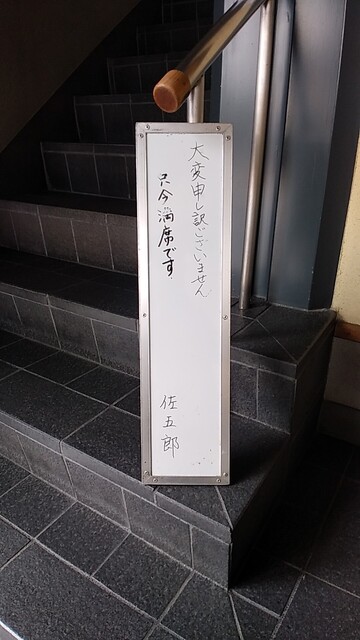 大変申し訳ございません
只今満席です
佐五郎